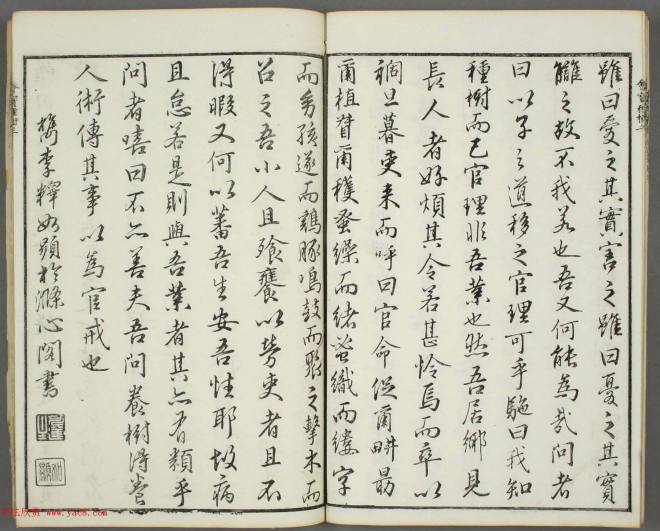 雖曰愛之其實害之雖曰憂之其實
讎之故不我若也吾又何能為哉問者
曰以子之道移之官理可乎駝曰我知
種樹而已官理非吾業也然吾居鄉見
長人者好煩其令若甚怜焉而卒以
禍旦暮吏来而呼曰官命促爾畊勗
爾植督爾穫蚤繰而緒蚤織而縷字
而幼孩遂而鷄豚鳴鼓而聚之擊木而
召之吾小人且飱饔以勞吏者且不
得暇又何以蕃吾生安吾性耶故病
且怠若是則與吾業者其亦有類乎
問者嘻曰不亦善夫吾問養樹得養
人術傳其事以為官戒也
檇李釋如顯於滌心閣書
书法欣赏 www.yac8.com